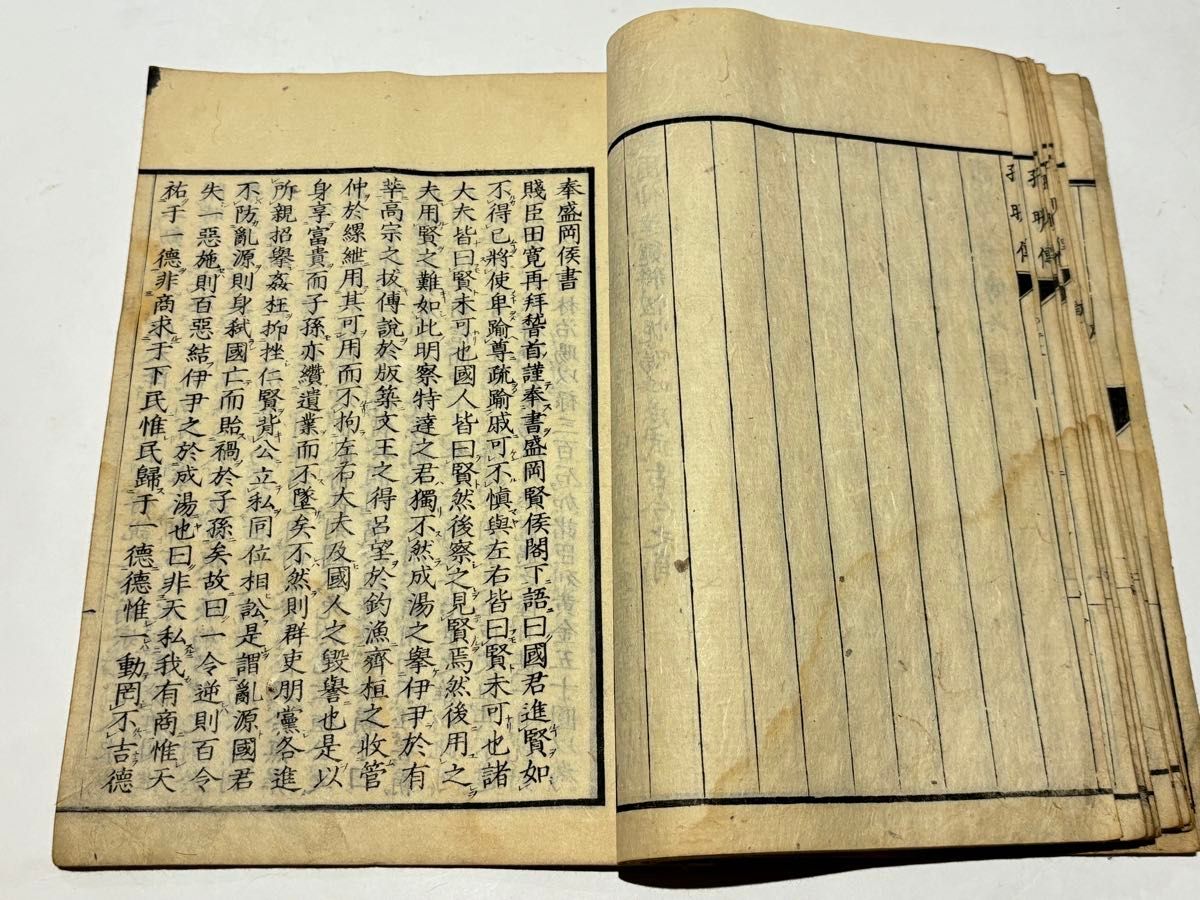 奉盛岡侯書
賤臣田寛再拜瞽首謹奉書盛岡賢侯閣下語曰國君進賢如
不得已將使卑踰尊疏踰戚可不慎與左右皆曰賢未可也諸
大夫皆曰賢未可也國人皆曰賢然後察之見賢焉然後用之
夫用賢之難如此明察特達之君獨不然成湯之擧伊尹於有
莘高宗之拔傅說於版築文王之得呂望於釣漁齊桓之收管
仲於縲紲用其可用而不拘左右大夫及國人之毀譽也是以
身享富貴而子孫亦纘遺業而不墜矣不然則群吏朋黨各進
所親招擧姦枉抑挫仁賢背公立私同位相訟是謂亂源國君
不防亂源則身弑國亡而貽禍於子孫矣故曰一令逆則百令
失一惡施則百惡結伊尹之於成湯也曰非天私我有商惟天
祐于一德非商求于下民惟民歸于一德德惟一動罔不吉德